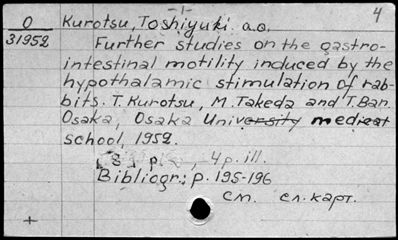 -1- 4
O Kurotsu, Toshiyuki a.o.
31952 Further studies on the gastro-
intestinal motility induced by the
hypothalamic stimulation of rab-
bits. T. Kurotsu, M. Takeda and T. Ban.
Osaka, Osaka University medical
school, 1952.
[8] p., 4 p. ill.
Bibliogr.: p. 195-196
см. сл. карт.
+